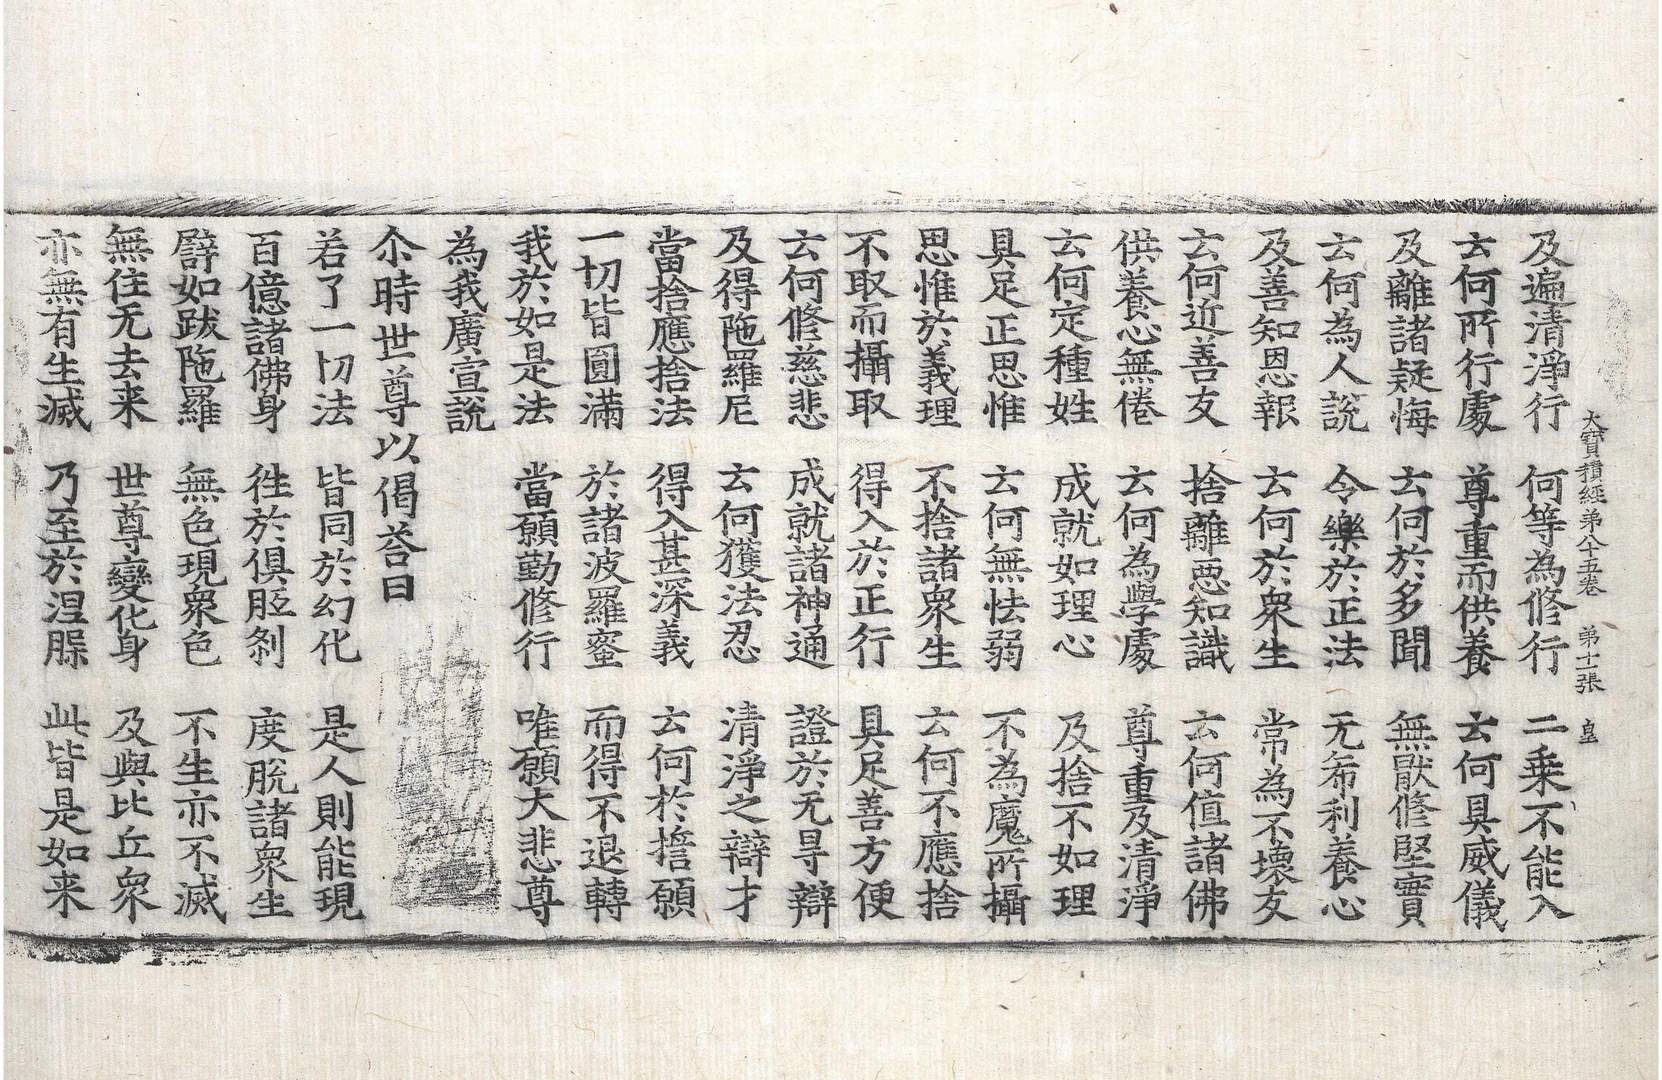 大寶積經第八十五卷 第十張 皇
及遍清淨行 何等為修行 二乗不能入
云何所行處 尊重而供養 云何具威儀
及離諸疑悔 云何於多聞 無猒修堅實
云何為人說 令樂於正法 无希利養心
及善知恩報 云何於衆生 常為不壞友
云何近善友 捨離惡知識 云何值諸佛
供養心無倦 云何為學處 尊重及清淨
云何定種姓 成就如理心 及捨不如理
具足正思惟 云何無怯弱 不為魔所攝
思惟於義理 不捨諸衆生 云何不應捨
不取而攝取 得入於正行 具足善方便
云何修慈悲 成就諸神通 證於无㝵辯
及得陁羅尼 云何獲法忍 清淨之辯才
當捨應捨法 得入甚深義 云何於誓願
一切皆圓滿 於諸波羅蜜 而得不退轉
我於如是法 當願勤修行 唯願大悲尊
為我廣宣說
尒時世尊以偈荅曰
若了一切法 皆同於幻化 是人則能現
百億諸佛身 徃於俱胝剎 度脫諸衆生
譬如跋陁羅 無色現衆色 不生亦不滅
無住无去来 世尊變化身 及與比丘衆
亦無有生滅 乃至於涅槃 此皆是如来